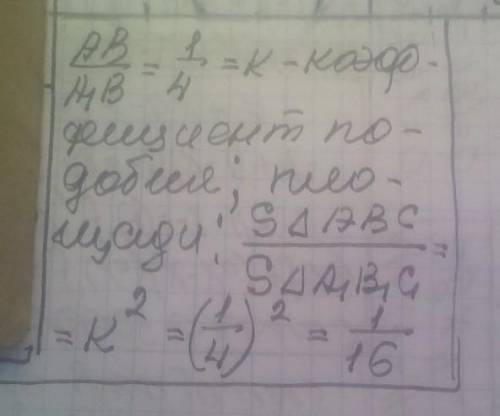 AB/A₁B = 1/4 = к - коэф-
фициент по-
добия; пло-
щади: S△ABC/S△A₁B₁C₁ =
= к² = (1/4)² = 1/16